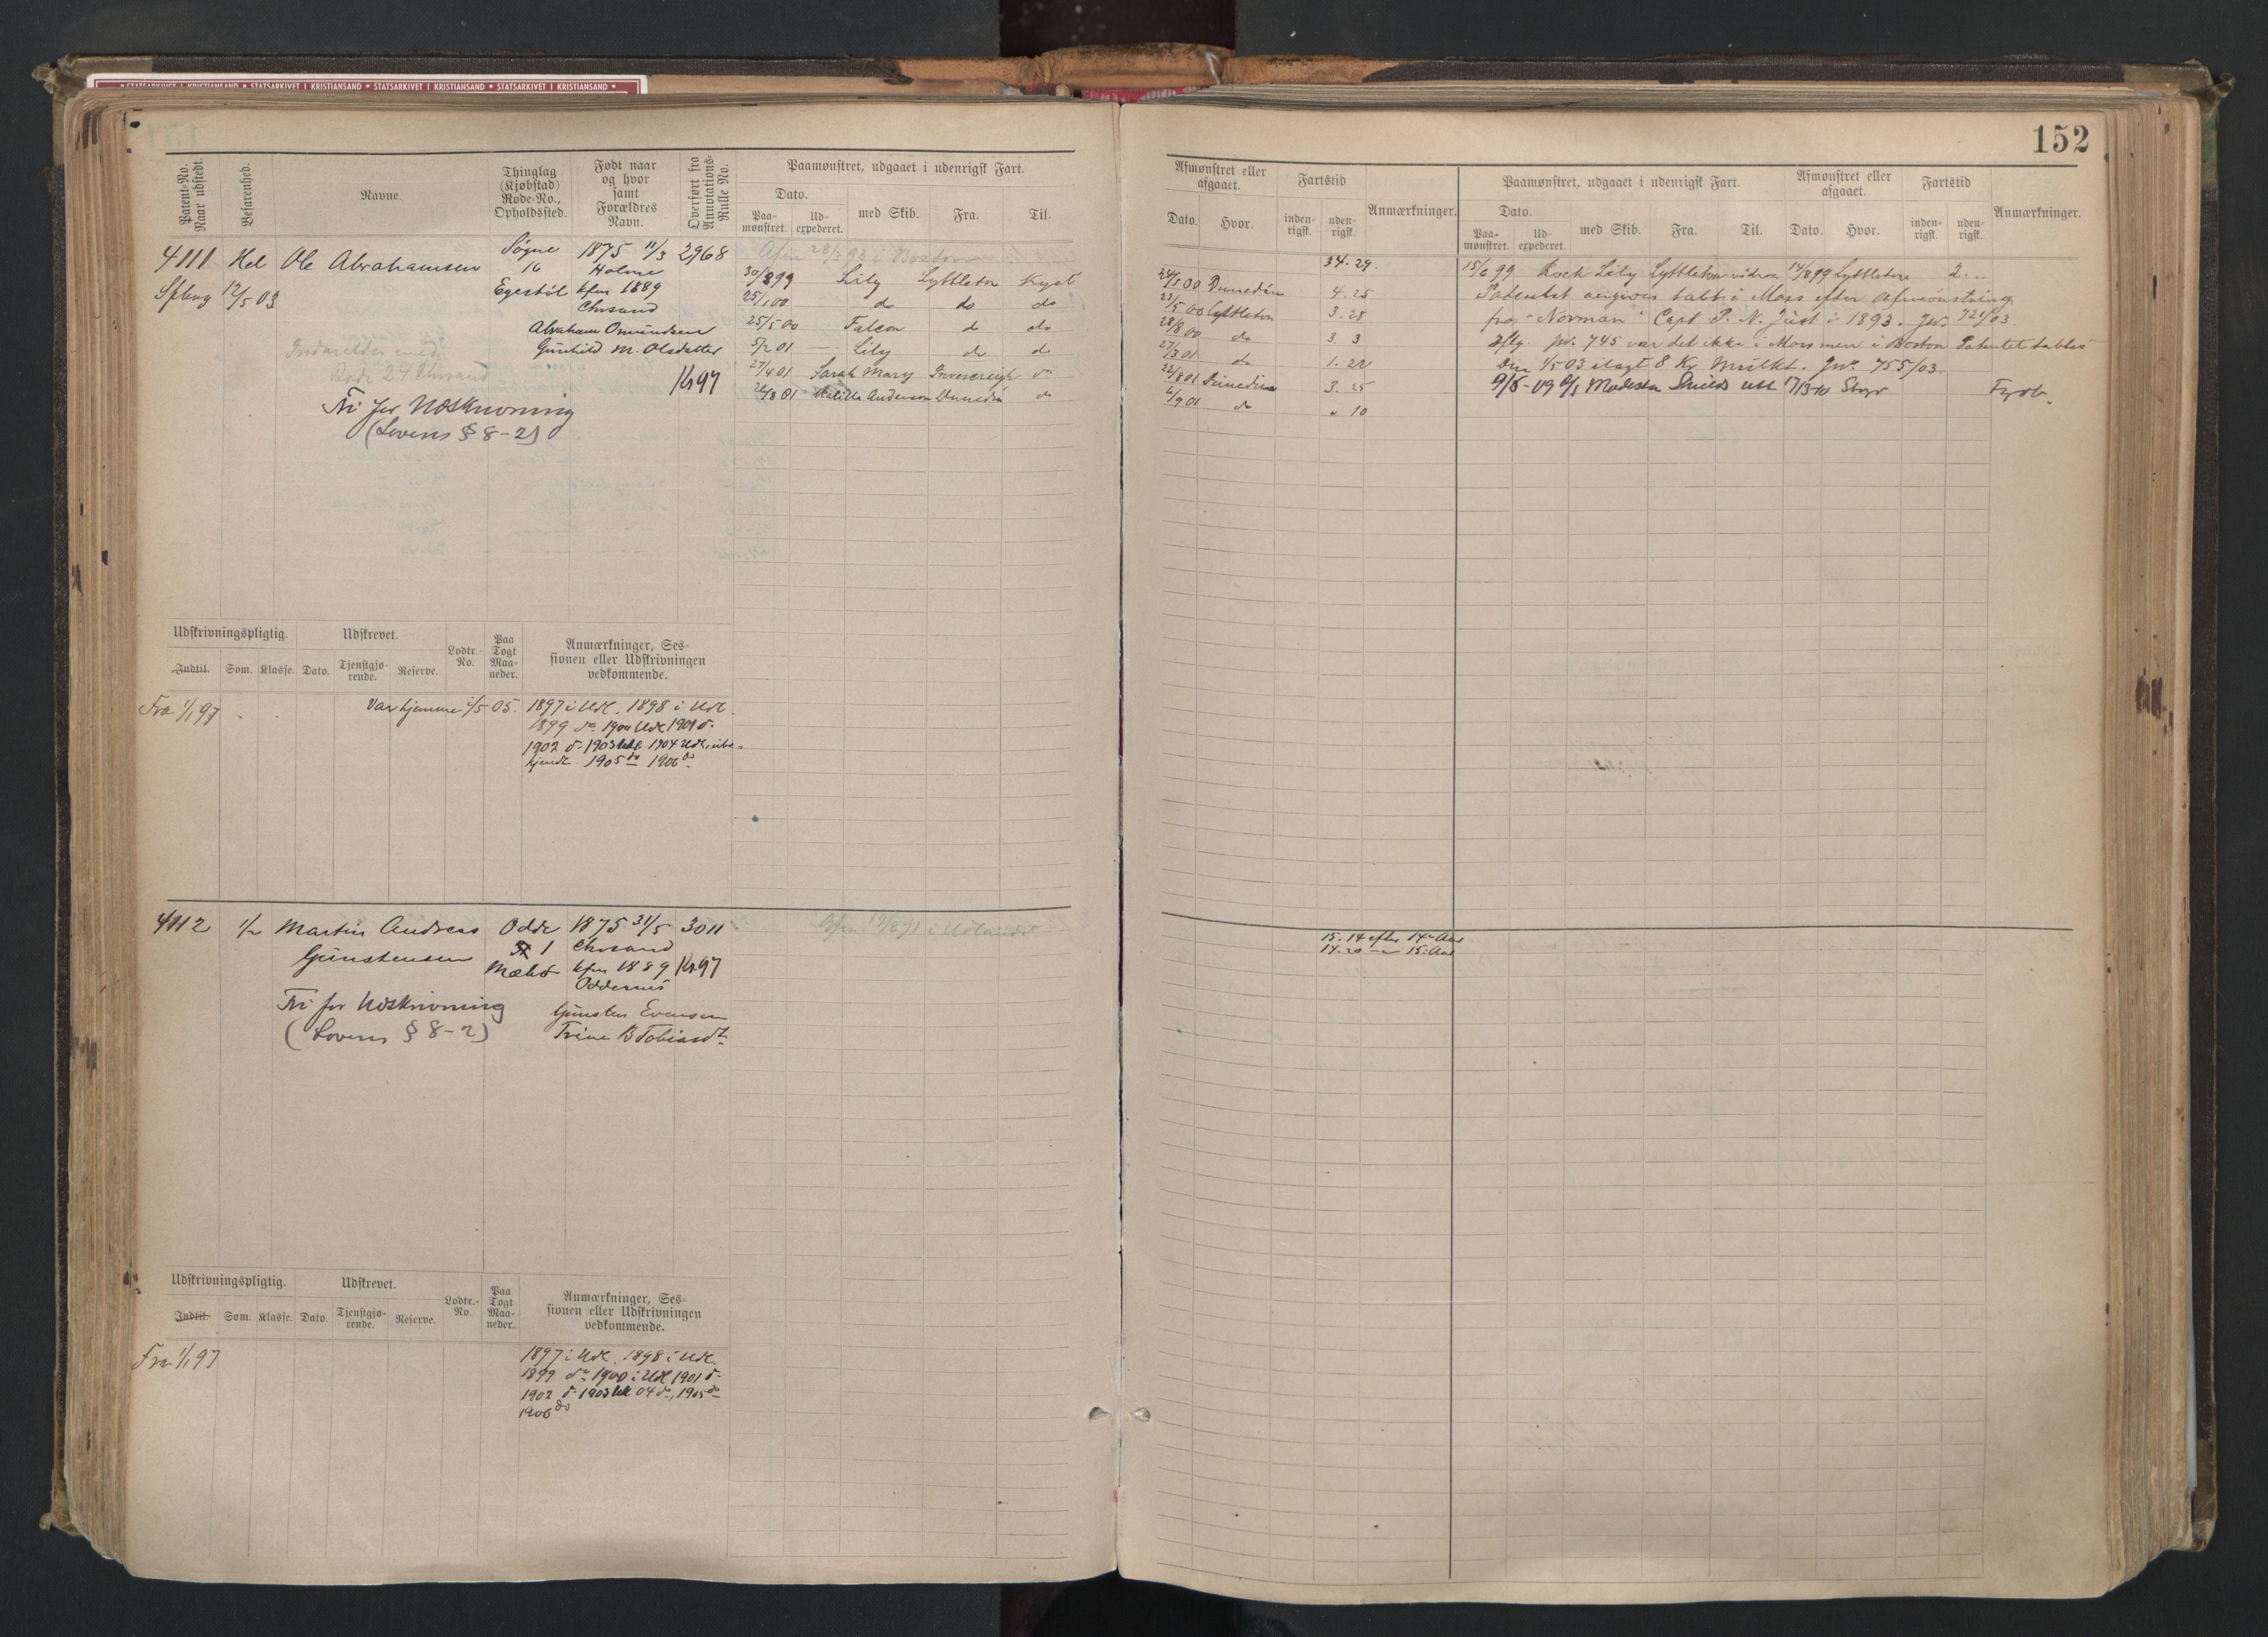 • STATSARKIVET I KRISTIANSAND • STATSARKIVET I KRISTIANSAND • STATSARKIVET I KRISTIANSAND • STATSARKIVET I KRISTIANSAND •
152
Patent-No. Naar udstedt.
Befarenhed.
Navne.
Thinglag (Kjøbstad) Rode-No., Opholdssted.
Født naar og hvor samt Forældres Navn.
Overført fra Annotations-Rulle No.
Paamønstret, udgaaet i udenrigsk Fart.
Dato.
Paa-mønstret.
Ud-expederet.
med Skib.
Fra.
Til.
4111 Hel Ole Abrahamsen Søgne 1875 11/3 2968 Afm 28/3 93 i Boston
16 Holme
12/5 03 Egestøl kfm 1889
Chrsand
Abraham Omundsen
Gunhild M. Olsdatter
Rode 24 Chrsand
Kr 97
Fri for Udskrivning
(Lovens § 8-2)
30/8 99 Lily Lyttleton Kyst
25/1 00 do do do
25/5 00 Falcon do do
5/2 01 — Lily do do
27/4 01 Sarah Mary do
26/8 01 Anderson Dunedin do
Udskrivningspligtig.
Udskrevet.
Lodtr.-No.
Paa Togt Maa-neder.
Anmærkninger, Ses-sionen eller Udskrivningen vedkommende.
Indtil.
Som.
Klasse.
Dato.
Tjenstgjø-rende.
Reserve.
Fra 1/1 97 Var hjemme 1/5 05. 1897 i Udl. 1898 i Udl.
1899 do 1900 Udl 1901 do
1902 do 1903 Udl 1904 Udl, ube-
kjendt 1905 do 1906 do
4112 1/2 Martin Andreas Odde 1875 31/5 3011 i Udlandet
Gunstensen 1 Chrsand
kfm 1889 Kr. 97
Oddernes
Fri for Udskrivning Gunsten Evensen
(Lovens § 8-2) Trine B Tobiasdt.
Udskrivningspligtig.
Udskrevet.
Lodtr.-No.
Paa Togt Maa-neder.
Anmærkninger, Ses-sionen eller Udskrivningen vedkommende.
Indtil.
Som.
Klasse.
Dato.
Tjenstgjø-rende.
Reserve.
Fra 1/1 97 1897 i Udl. 1898 i Udl.
1899 do 1900 i Udl 1901 do
1902 do 1903 Udl 04 do, 1905 do
1906 do
Afmønstret eller afgaaet.
Dato.
Hvor.
Fartstid
inden-rigsk.
uden-rigsk.
Anmærkninger.
Paamønstret, udgaaet i udenrigsk Fart.
Dato.
Paa-mønstret.
Ud-expederet.
med Skib.
Fra.
Til.
Afmønstret eller afgaaet.
Dato.
Hvor.
Fartstid
inden-rigsk.
uden-rigsk.
Anmærkninger.
34.29.
24/1 00 Dunedin 4.25
23/5 00 Lyttleton 3.28
28/8 00 do 3.3
27/3 01 do 1.22
22/8 01 Dunedin 3.25
6/9 01 do " 10
15/6 99 Lily Lyttleton 14/8 99 Lyttleton 2. "
Patentet angives tabt i Moss efter Afmønstring
fra "Norman" Capt P. N. Just i 1893. Jw. 721/03.
Iflg. Jw. 745 var det ikke i Moss men i Boston Patentet tabtes
Den 1/5 03 ilagt 8 Kr Mulkt. Jw. 755/03.
9/5-09 D/S Modesta Shields 17/3-10 Fyrb.
15.14 efter 14 Aar
14.20 — 15 Aar